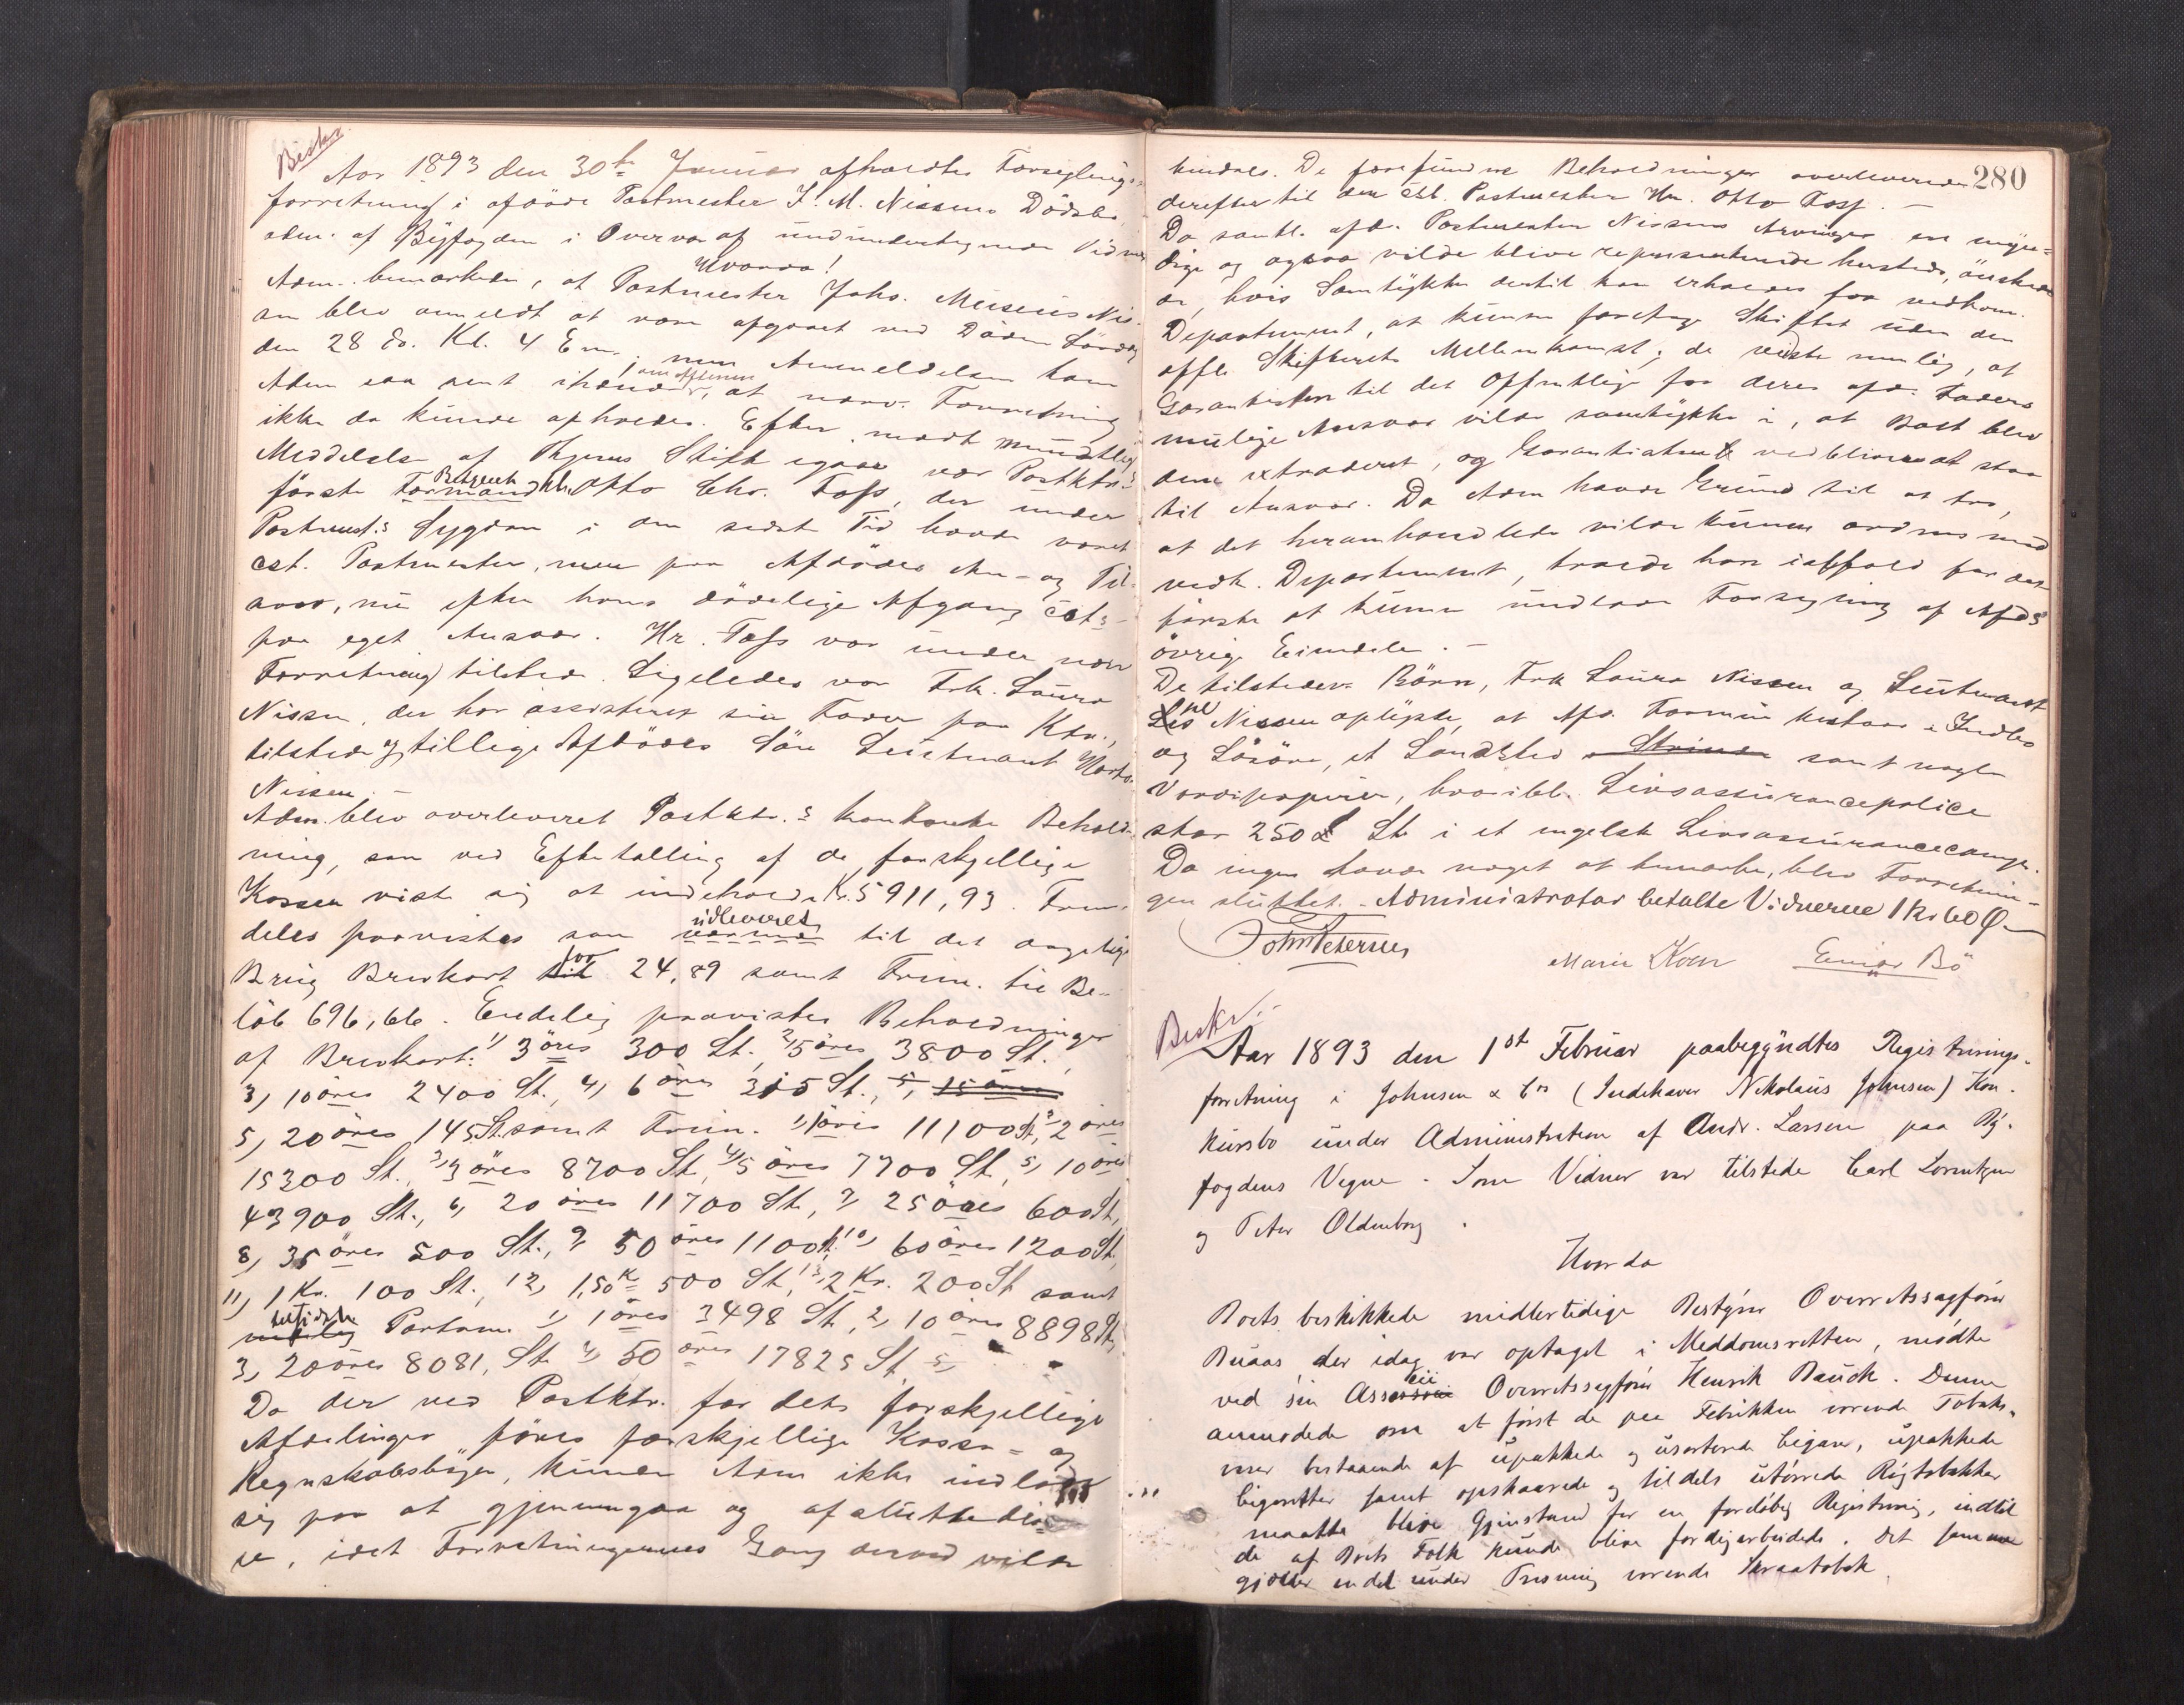 Beskr.
Aar 1893 den 30te Januar afholdtes Forseglings-
forretning i afdøde Postmester J. M. Nissens Dödsbo
adm. af Byfogden i Overvær af undertegnede Vidner
Hvorda!
Adm. bemærkede, at Postmester Johs. Meisenis Nis-
sen blev anmeldt at være afgaaet ved Döden Lördag
den 28 ds. Kl. 4 Em., men Anmeldelsen kom
Adm saa sent ihænde, om Aftenen at nærv. Forretning
ikke da kunde afholdes. Efter modt mundtlig
Meddelelse af Thjems Stift igaar var Postktr.s
förste Betjent Formand Hr. Otto Chr. Foss, der under
Postmest.s Sygdom i den sidste Tid havde været
cst. Postmester, men paa Afdödes An- og Til-
svar, nu efter hans dödelige Afgang cst.s
paa eget Ansvar. Hr. Foss var under nærv
Forretning tilstede. Ligeledes var Frk. Laura
Nissen, der har assisteret sin Fader paa Ktr.,
tilstede og tillige Afdödes Sön Leutnant
Nissen. —
Adm. blev overleveret Postktr.s kontante Behold-
ning, som ved Eftertælling af de forskjellige
Kasser viste sig at indeholde Kr. 5911,93. Frem-
deles paavistes som udleveret til det daglige
Brug Brevkort for 24,89 samt Frim. til Be-
löb 696,66. Endelig paavistes Beholdninger
af Brevkort: 1) 3 öres 300 St., 2) 5 öres 3800 St.,
3) 10 öres 2400 St., 4) 6 öres 315 St., 5) 15 öres
5) 20 öres 145 St. samt Frim. 1) 1 öres 11100 St, 2) 2 öres
15300 St., 3) 3 öres 8700 St, 4) 5 öres 7700 St, 5) 10 öres
43900 St., 6) 20 öres 11700 St, 7) 25 öres 600 St,
8) 35 öres 500 St., 9) 50 öres 1100 St, 10) 60 öres 1200 St,
11) 1 Kr. 100 St., 12) 1,50 Kr 500 St, 13) 2 Kr. 200 St samt
Portom. 1) 1 öres 3498 St, 2) 10 öres 8898 St,
3) 20 öres 8081 St 4) 50 öres 17825 St 5)
Da der ved Postktr. for dets forskjellige
Afdelinger föres forskjellige Kasse- og
Regnskabsböger, kunde Adm ikke indlade
sig paa at gjennemgaa og afslutte dis-
se, idet Forretningernes Gang derved vilde
280
hindres. De forefundne Beholdninger overleveredes
derefter til den cst. Postmester Hr. Otto Foss. —
Da samtl. afd. Postmester Nissens Arvinger ere myn-
dige og ogsaa vilde blive repræsenterede hersteds, önskede
de, hvis Samtykke dertil kan erholdes fra vedkom.
Departement, at kunne foretage Skiftet uden den
offtl. Skifterets Mellemkomst; de vidste nemlig, at
Garantisten til det Offentlige for deres afd. Faders
mulige Ansvar vilde samtykke i, at Boet blev
dem extraderet, og Garantisten vedbliver at staa
til Ansvar. Da Adm havde Grund til at tro,
at det heromhandlede vilde kunne ordnes med
vedk. Departement, troede han iaffald for det
förste at kunne undlade Forsegling af Afd.s
övrige Eiendele. —
De tilstedev. Börn, Frk Laura Nissen og Leutnant
Nissen oplyste, at Afd. Formue bestaar i Indbo
og Lösöre, et Landsted i Strinda samt nogle
Værdipapirer, hvoribl. Livsassurancepolice
stor 250 £ St. i et engelsk Livsassurancecomp.
Da ingen havde noget at bemærke, blev Forretnin-
gen sluttet. — Administrator betalte Vidnerne 1 Kr 60 Ø
John Petersen
Marie Koen Einar Bö
Beskr.
Aar 1893 den 1st Februar paabegyndtes Registrerings-
forretning i Johnsen & Co (Indehaver Nikolaus Johnsen) Kon-
kursbo under Administration af Andr. Larsen paa By-
fogdens Vegne. Som Vidner var tilstede Carl Lorentzen
og Peter Oldenborg.
Hvorda
Boets beskikkede midlertidige Bestyrer Overretssagförer
Buaas, der idag var optaget i Meddomsretten, mødte
ved sin Overretssagförer Henrik Bauck. Denne
anmodede om at først de paa Fabrikken værende Tobaks-
varer bestaaende af upakkede og usorterede Cigarer, upakkede
Cigaretter samt opskaarede og tildels utörrede Rögtobakker
maatte blive Gjenstand for en foreløbig Registrering, indtil
de af Boets Folk kunde blive færdigarbeidede. Det samme
gjælder endel under Presning værende Skraatobak.